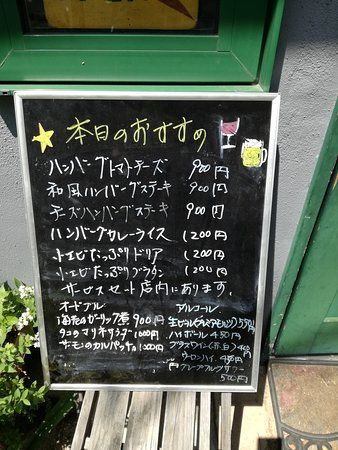 本日のおすすめ
ハンバーグトマトチーズ 900円
和風ハンバーグステーキ 900円
チーズハンバーグステーキ 900円
ハンバーグカレーライス 1200円
小エビたっぷりドリア 1200円
小エビたっぷりグラタン 1200円
サービスセット店内にあります。
オードブル
海老のガーリック煮 900円
タコのマリネ 1000円
サーモンのカルパッチョ 1000円
アルコール
生ビール 550円
ハイボール 450円
グラスワイン(赤・白) 450円
ウーロンハイ 450円
グレープフルーツサワー
500円